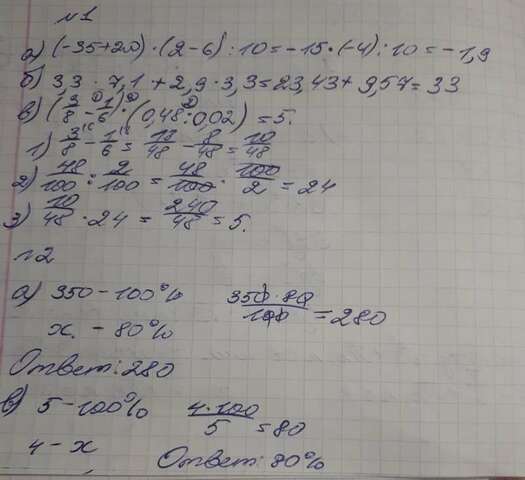 №1
а) (-35+20)·(2-6):10=-15·(-4):10=-1,9
б) 3,3·7,1+2,9·3,3=23,43+9,57=33
в) (3/8-1/6)·(0,48:0,02)=5.
1) 3/8-1/6=18/48-8/48=10/48
2) 48/100:2/100=48/100·100/2=24
3) 10/48·24=240/48=5.
№2
а) 350-100% 350·80/100=280
х - 80%
Ответ: 280
в) 5-100% 4·100/5=80
4-х
Ответ: 80%